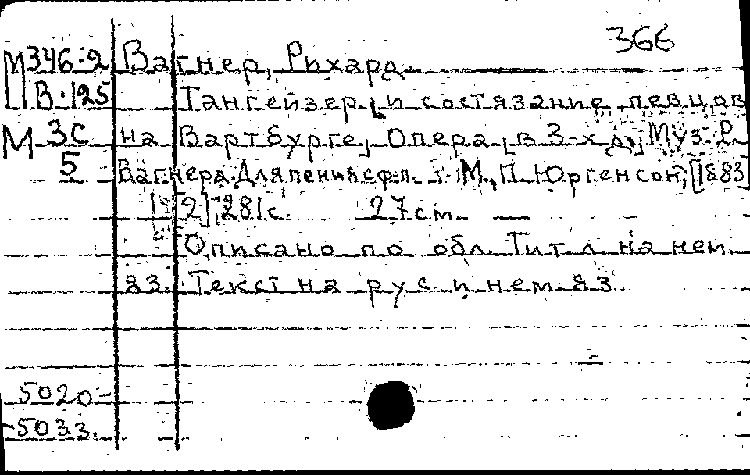 366
М 346-2 Вагнер, Рихард.
В-125 Тангейзер и состязание певцов
М 3с на Вартбурге, Опера в 3-х д., Муз. Р.
5 Вагнера. Для пения с ф.-п. М., П. Юргенсон, [1883]
[2], 281с. 27см.
Описано по обл. Тит. л. на нем.
яз. Текст на рус. и нем. яз.
5020-
-5033.